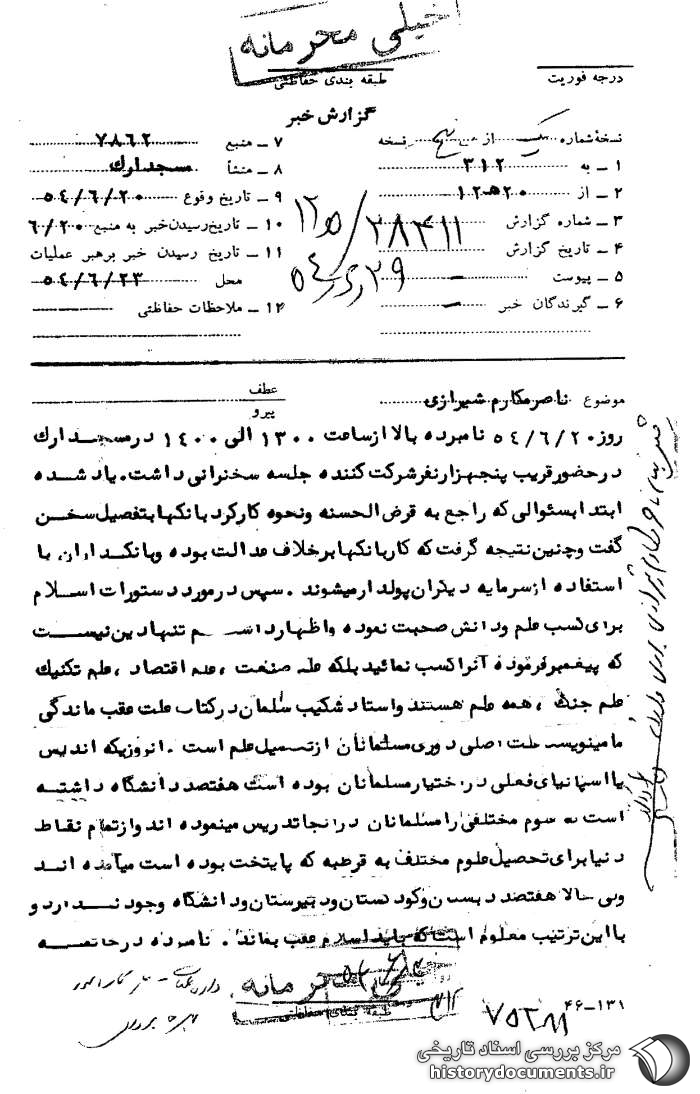 خیلی محرمانه
طبقه بندی حفاظتی
درجه فوریت
گزارش خبر
نسخهٔ شماره یک از پنج نسخه
۱ ـ به ۳۱۲
۲ ـ از ۲۰ ه ۱۲
۳ ـ شماره گزارش ۲۸۴۱۱/ ۱۲ه
۴ ـ تاریخ گزارش
۵ ـ پیوست ـ
۶ ـ گیرندگان خبر ـ
۷ ـ منبع ۷۸۶۲
۸ ـ منشأ مسجد ارك
۹ ـ تاریخ وقوع ۵۴/۶/۲۰
۱۰ ـ تاریخ رسیدن خبر به منبع ۶/۲۰
۱۱ ـ تاریخ رسیدن خبر برهبر عملیات
محل ۵۴/۶/۲۳
۱۲ ـ ملاحظات حفاظتی
موضوع ناصر مکارم شیرازی
عطف
پیرو
روز ۵۴/۶/۲۰ نامبرده بالا از ساعت ۱۳۰۰ الی ۱۴۰۰ در مسجد ارك
در حضور قریب پنجهزار نفر شرکت کننده جلسه سخنرانی داشت. یاد شده
ابتدا بسئوالی که راجع به قرض الحسنه ونحوه کارکرد بانکها بتفصیل سخن
گفت وچنین نتیجه گرفت که کار بانکها بر خلاف عدالت بوده وبانکداران با
استفاده از سرمایه دیگران پولدار میشوند . سپس در مورد دستورات اسلام
برای کسب علم ودانش صحبت نموده واظهار داشت علم تنها دین نیست
که پیغمبر فرموده آنرا کسب نمائید بلکه علم صنعت ، علم اقتصاد ، علم تکنیك
علم جنگ ، همه علم هستند واستاد شکیب سلمان در کتاب علت عقب ماندگی
ما مینویسد علت اصلی دوری مسلمانان از تحصیل علم است . انروزیکه اندلس
یا اسپانیای فعلی در اختیار مسلمانان بوده است هفتصد دانشگاه داشته
است علوم مختلفی را مسلمانان در انجا تدریس مینموده اند واز تمام نقاط
دنیا برای تحصیل علوم مختلف به قرطبه که پایتخت بوده است میآمده اند
ولی حالا هفتصد دبستان وکودکستان ودبیرستان ودانشگاه وجود ندارد و
با این ترتیب معلوم است که باید اسلام عقب بماند . نامبرده در خاتمه
خیلی محرمانه
طبقه بندی حفاظتی
۴۶-۱۳۱
مرکز بررسی اسناد تاریخی
historydocuments.ir